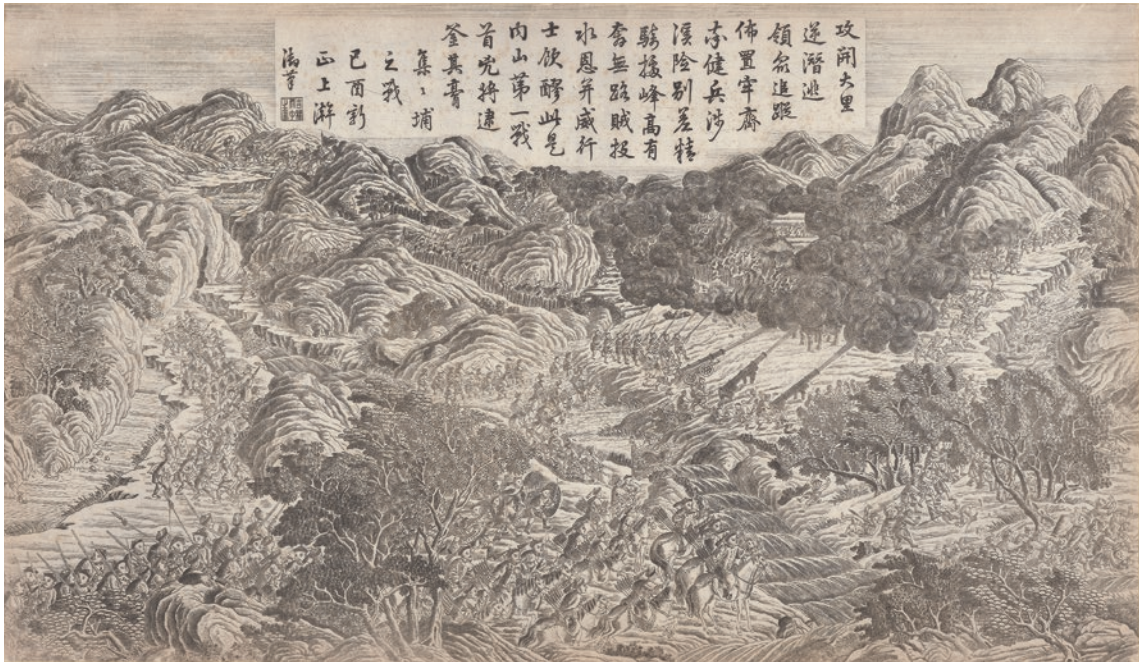 攻開大里
逆潛逃
領衆追蹤
佈置牢齊
率健兵涉
溪險別差精
騎援峰高有
奪無路賊投
水恩并威行
士飲醪此是
内山第一戰
首兇將逮
釜其膏
集〻埔
之戰
己酉新
正上澣
御筆